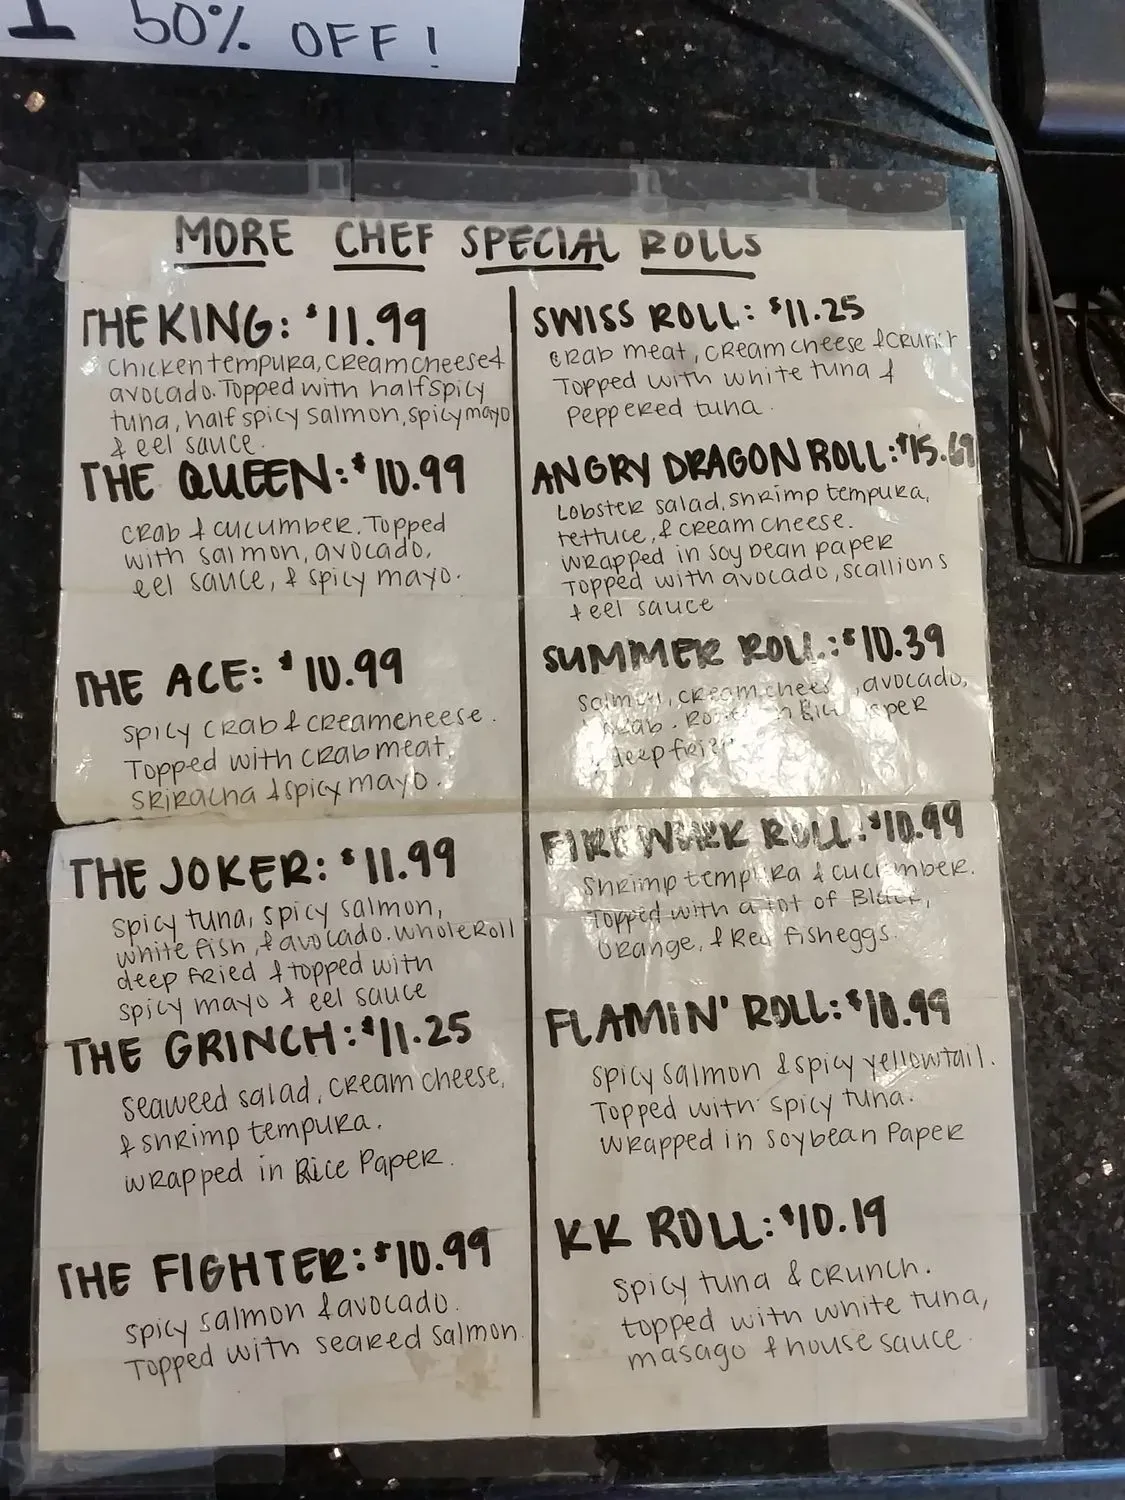 50% OFF!
MORE CHEF SPECIAL ROLLS
THE KING: $11.99
Chicken tempura, cream cheese &
avocado. Topped with half spicy
tuna, half spicy salmon, spicy mayo
& eel sauce.
THE QUEEN: $10.99
Crab & cucumber. Topped
with salmon, avocado,
eel sauce, & spicy mayo.
THE ACE: $10.99
Spicy crab & creamcheese.
Topped with crab meat,
Sriracha & spicy mayo.
THE JOKER: $11.99
Spicy tuna, spicy salmon,
white fish, & avocado. whole Roll
deep fried & topped with
spicy mayo & eel sauce
THE GRINCH: $11.25
Seaweed salad, cream cheese,
& shrimp tempura.
wrapped in Rice Paper.
THE FIGHTER: $10.99
Spicy salmon & avocado.
Topped with seared salmon
SWISS ROLL: $11.25
Crab meat, cream cheese & crunch
Topped with white tuna &
peppered tuna.
ANGRY DRAGON ROLL: $15.69
Lobster salad, shrimp tempura,
lettuce, & cream cheese.
wrapped in soy bean paper
Topped with avocado, scallions
& eel sauce
SUMMER ROLL: $10.39
Salmon, cream cheese, avocado,
crab. Rolled in Rice paper
deep fried
FIREWORK ROLL: $10.99
Shrimp tempura & cucumber.
Topped with a lot of Black,
Orange, & Red fisheggs.
FLAMIN' ROLL: $10.99
Spicy salmon & spicy yellowtail.
Topped with spicy tuna.
Wrapped in Soybean Paper
KK ROLL: $10.19
Spicy tuna & crunch.
topped with white tuna,
masago & house sauce.